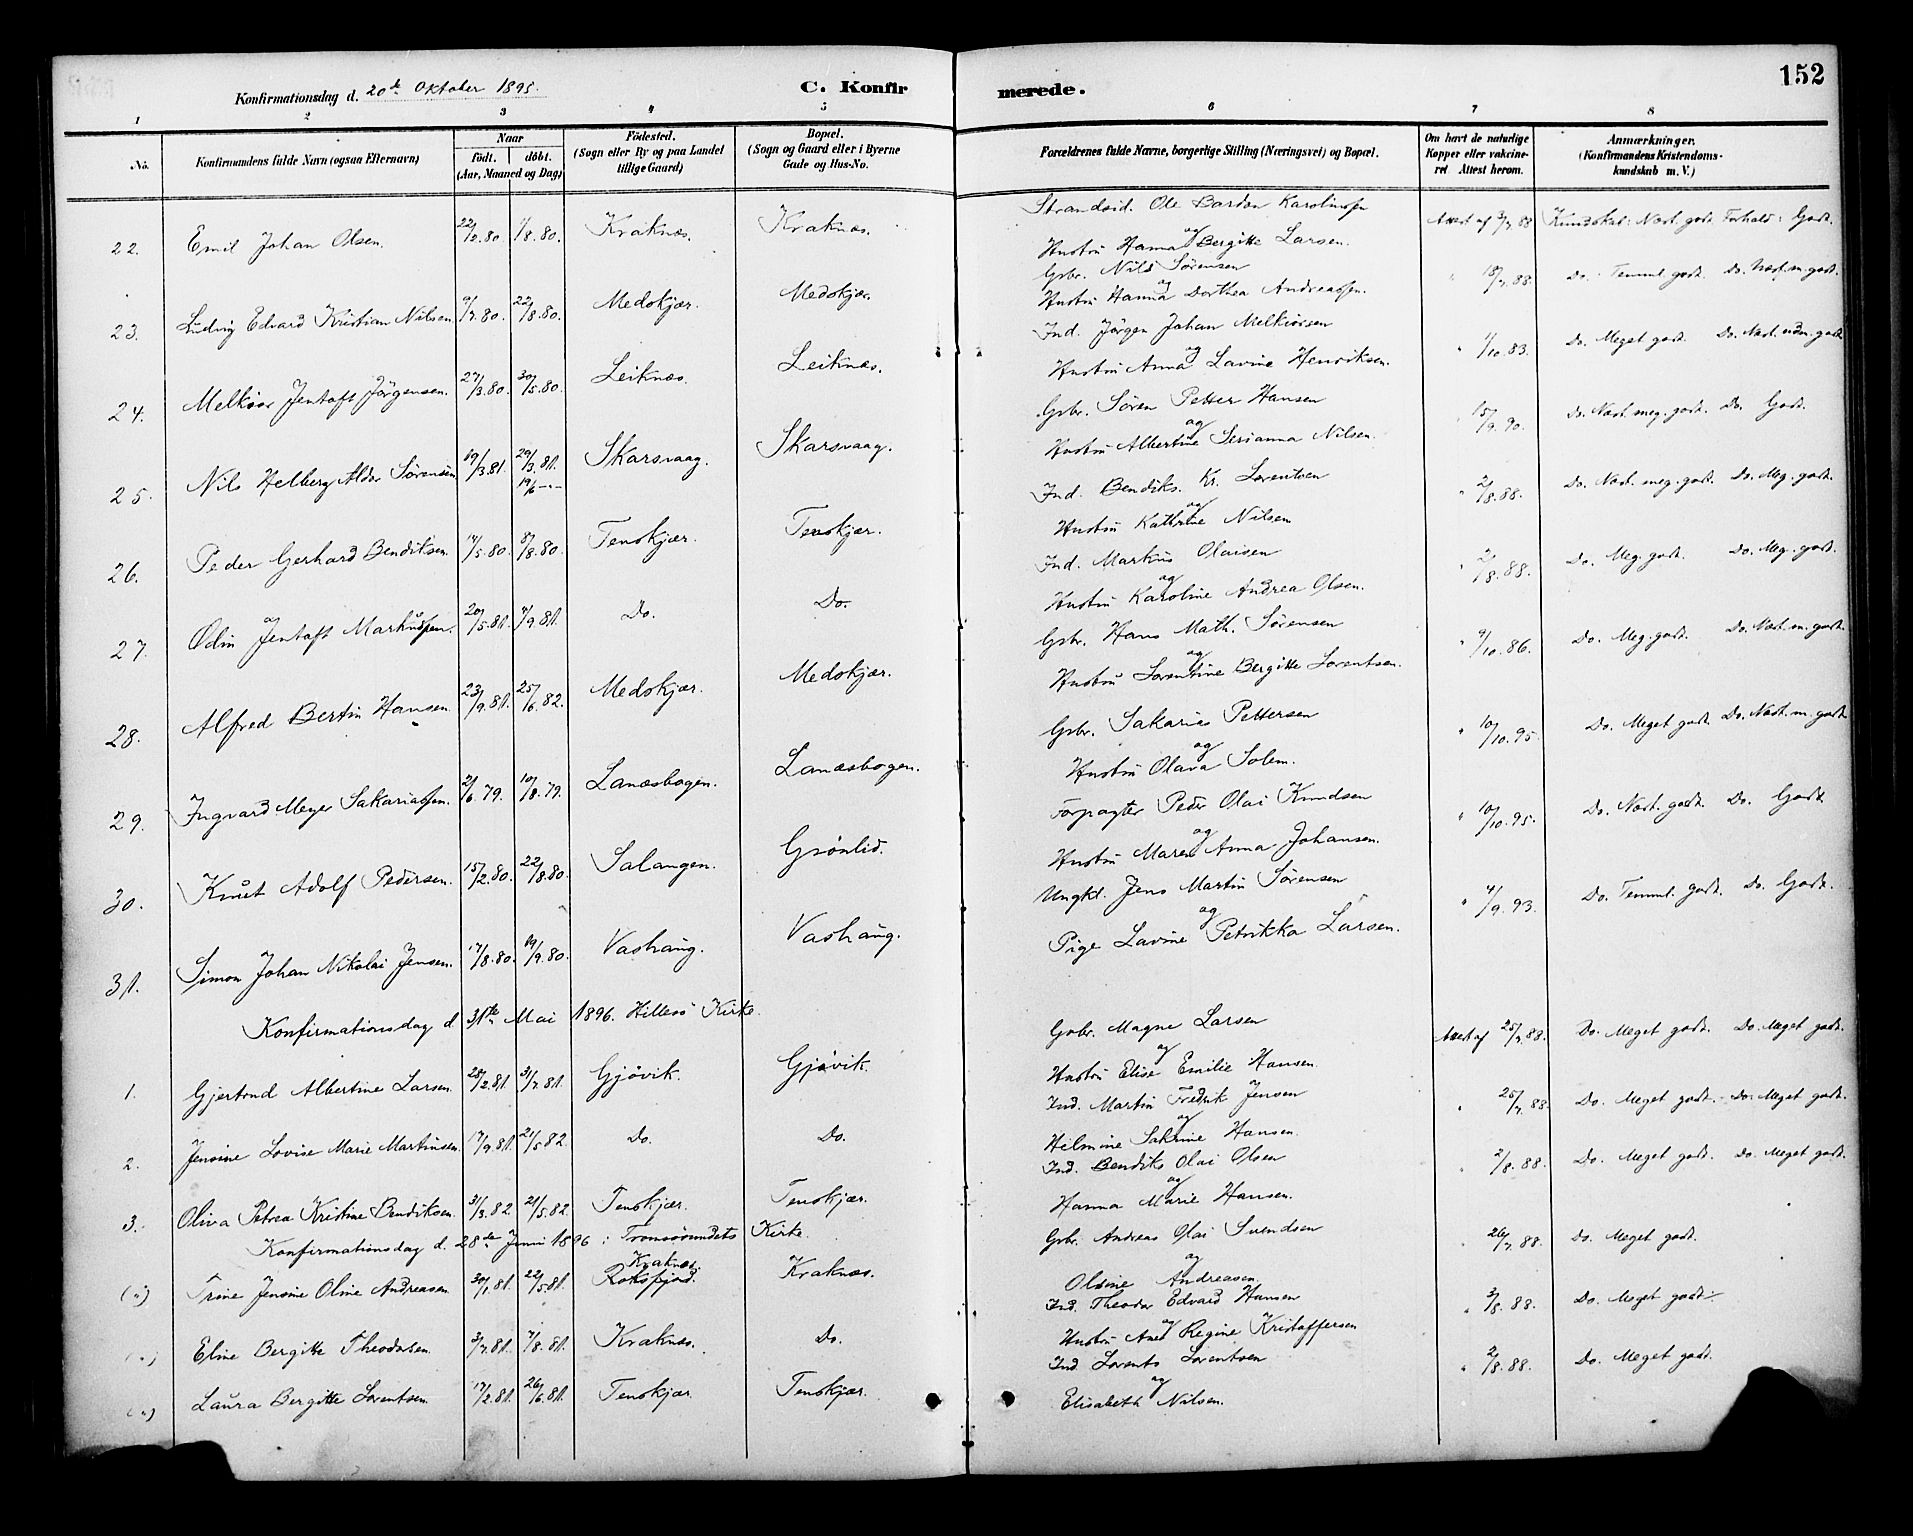 152
Konfirmationsdag d. 20de Oktober 1895.
C. Konfirmerede.
1 2 3 4 5 6 7 8
No. Konfirmandens fulde Navn (ogsaa Efternavn) Naar født. døbt. (Aar, Maaned og Dag) Fødested. (Sogn eller By og paa Landet tillige Gaard) Bopæl. (Sogn og Gaard eller i Byerne Gade og Hus-No. Forældrenes fulde Navne, borgerlige Stilling (Næringsvei) og Bopæl. Om havt de naturlige Kopper eller vakcineret Attest herom. Anmærkninger. (Konfirmandens Kristendomskundskab m. V.)
22. Emil Johan Olsen. 22/2.80. 1/8.80. Kraknæs. Kraknæs. Strandsid. Ole Bardon Karolinssen og Hustru Hanna Bergitte Larsen. Attest af 3/7 88 Kundskab: Næst. godt Forhold: Godt.
23. Ludvig Edvard Kristian Nilsen. 9/7.80. 22/8.80. Medskjær. Medskjær. Gbr. Nils Sørensen og Hustru Hanna Dorthea Andreassen. " 18/7.88. Do. Temml. godt. Do. Næst. m. godt.
24. Melkior Jentoft Jørgensen. 27/3.80. 30/5.80. Leiknæs. Leiknæs. Ind. Jørgen Johan Melkiorsen og Hustru Anna Lavine Henriksen. " 1/10.83. Do. Meget godt. Do. Næst. udm. godt
25. Nils Helberg Aldor Sørensen 19/3.81. 29/3.81. 19/6 -"- Skarsvaag. Skarsvaag. Gbr. Søren Petter Hansen og Hustru Albertine Serianna Nilsen. " 15/9.90. Do. Næst. meg. godt. Do. Godt.
26. Peder Gerhard Bendiksen. 14/5.80. 8/8.80. Tenskjær. Tenskjær. Ind. Bendiks. Kr. Lorentsen og Hustru Kathrine Nilsen " 2/8.88. Do. Næst. meg. godt. Do. Meg. godt.
27. Odin Jentoft Markussen. 20/5.81. 4/9.81. Do. Do. Ind. Markus Olaisen og Hustru Karoline Andrea Olsen. " 2/8.88. Do. Meg. godt. Do. Meg. godt.
28. Alfred Bertin Hansen. 23/9.81. 25/6.82. Medskjær. Medskjær. Gbr. Hans Math. Sørensen og Hustru Lorentine Bergitte Lorentsen. " 9/10.86. Do. Meg. godt. Do. Næst. m. godt.
29. Ingvard Meyer Sakariassen. 2/6.79. 10/8.79. Lanæsbogen. Lanæsbogen. Gbr. Sakarias Pettersen og Hustru Olava Solem. " 10/10.95. Do. Meget godt. Do. Næst. m. godt
30. Knut Adolf Pedersen. 15/2.80. 22/8.80. Salangen. Grønlid. Forpagter Peder Olai Knudsen og Hustru Maren Anna Johansen. " 10/10.95. Do. Næst. godt. Do. Godt.
31. Simon Johan Nikolai Jensen. 17/8.80. 19/9.80. Vashaug. Vashaug. Ungkl. Jens Martin Sørensen og Pige Lavine Petrikka Larsen. " 4/9.93. Do. Temml. godt. Do. Godt.
Konfirmationsdag d 31te Mai 1896. Hillesø Kirke.
1. Gjertrud Albertine Larsen. 28/2.81. 31/7.81. Gjøvik. Gjøvik. Gbr. Magne Larsen og Hustru Elise Emilie Hansen. Attest af 25/7.88. Do. Meget godt. Do. Meget godt.
2. Jensine Lovise Marie Martinsen. 17/9.81. 21/5.82. Do. Do. Ind. Martin Fredrik Jensen og Helmine Sakrine Hansen. " 25/7.88. Do. Meget godt. Do. Meget godt.
3. Oliva Petrea Kristine Bendiksen. 31/3.82. 21/5.82. Tenskjær. Tenskjær. Ind. Bendiks Olai Olsen og Hanna Marie Hansen. " 2/8.88. Do. Meget godt. Do. Meget godt.
Konfirmationsdag d. 28de Juni 1896 i Tromsøsundets Kirke.
(") Trine Jensine Oline Andreasen 30/1.81. 22/5.81. Kraknæs. Roksfjord. Kraknæs. Gbr. Andreas Olai Svendsen og Olsine Andreasen. " 26/7.88. Do. Meget godt.
(") Eline Bergitte Theodorsen. 3/7.81. 7/8.81. Kraknæs. Do. Ind. Theodor Edvard Hansen og Hustru Ane Regine Kristoffersen " 3/8.88. Do. Meget godt.
(") Laura Bergitte Lorentsen. 17/2.81. 26/6.81. Tenskjær. Tenskjær. Ind. Lorents Lorentsen og Elisabeth Nilsen. " 2/8.88. Do. Meget godt.